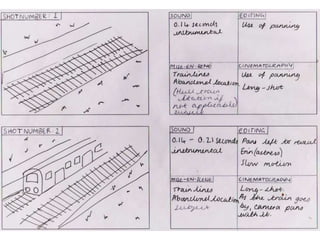 SHOT NUMBER: 1
SOUND
0.14 seconds
instrumental
EDITING
Use of panning
MISE-EN-SCENE
Trainlines
Abandoned location
not applicable)
CINEMATOGRAPHY
Use of panning
Long-shot
SHOT NUMBER: 2
SOUND
0.14 - 0.21 seconds
instrumental
EDITING
Pans left to reveal
Erin (actress)
Slow motion
MISE-EN-SCENE
Train lines
Abandoned location
CINEMATOGRAPHY
Long-shot.
As the train goes
by, camera pans
with it.